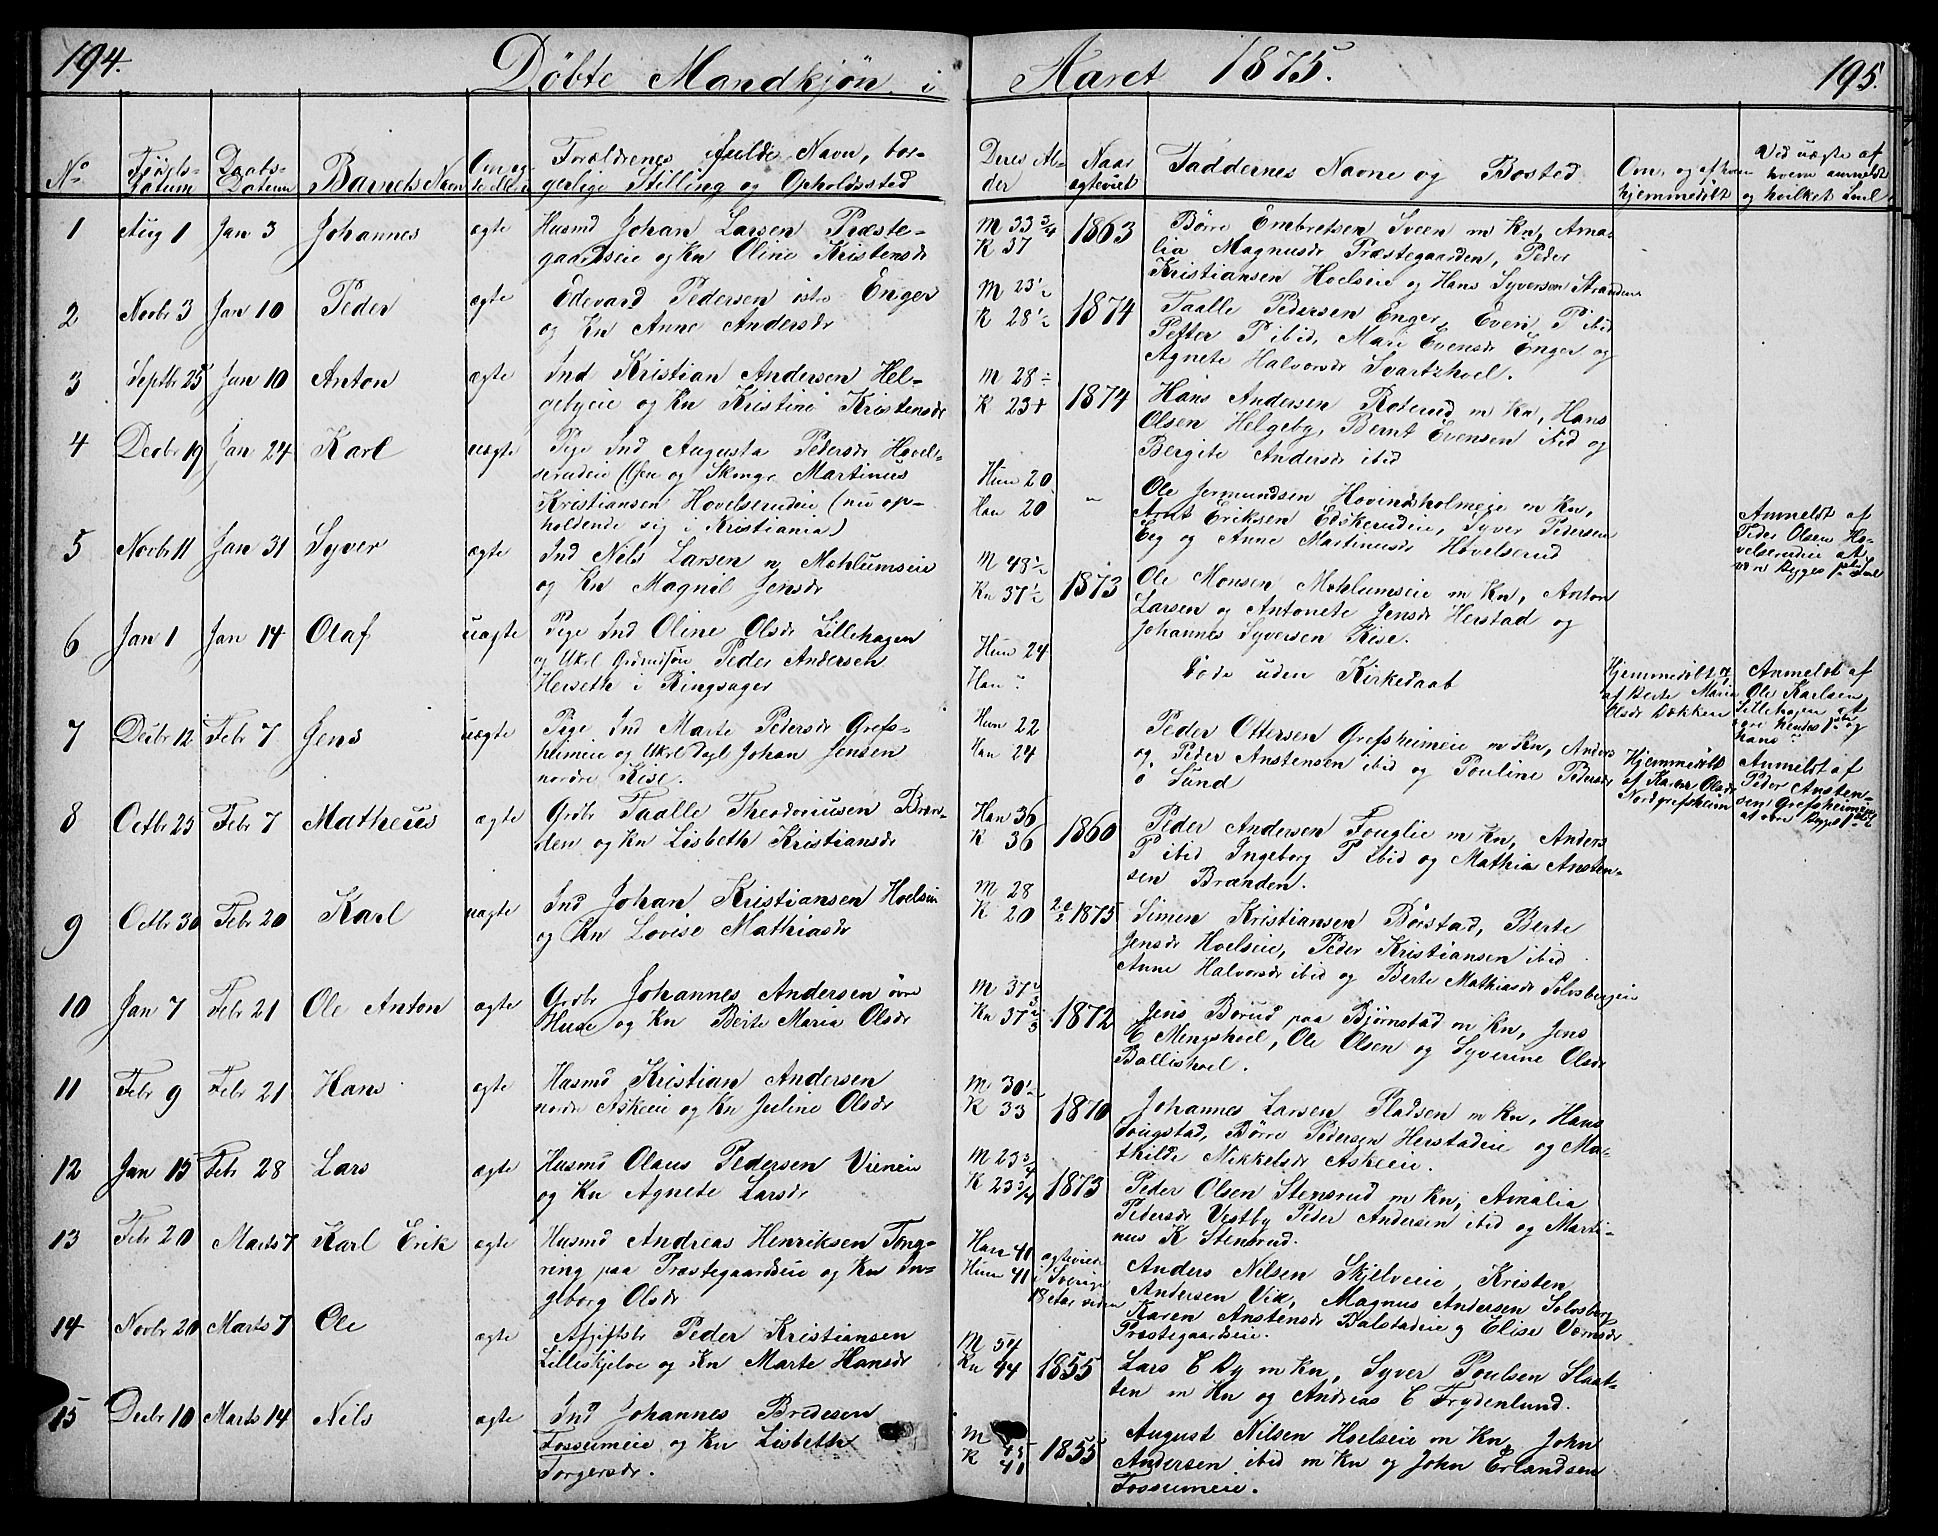 194.
Döbte Mandkjön i
Aaret 1875.
195.
No
Födsels-
datum
Daabs-
Datum
Barnets Navn
Om æg-
te eller
Forældrenes fulde Navn, bor-
gerlige Stilling og Opholdssted
Deres Al-
der
Naar
ægteviet
Faddernes Navne og Bosted
Om, og af hvem
hjemmedöbt
Ved uægte af
hvem anmeldt
og hvilket Leul
1 Aug 1 Jan 3 Johannes ægte
Husmd Johan Larsen Præste-
gaardseie og Kn Oline Kristensdr
M 33 3/4
K 37
1863
Börre Embretsen Sveen m Kn, Ama-
lia Magnusdr Præstegaarden, Peder
Kristiansen Hoelseie og Hans Syversen Stranden
2 Novbr 3 Jan 10 Peder ægte
Edevard Pedersen östre Enger
og Kn Anne Andersdr
M 23 1/2
K 28 1/2
1874
Taalle Pedersen Enger, Even P ibid
Petter P ibid, Mari Evensdr Enger og
Agnete Halvorsdr Svartshoel.
3 Septbr 25 Jan 10 Anton ægte
Ind Kristian Andersen Hel-
gebyeie og Kn Kristine Kristensdr
M 28
K 23
1874
Hans Andersen Roterud m Kn, Hans
Olsen Helgeby, Bernt Evensen ibid og
Bergite Andersdr ibid
4 Decbr 19 Jan 24 Karl uægte
Pige Ind Augusta Pedersdr Hovel-
serudeie og Martinus
Kristiansen Hovelserudeie (nu op-
holdende sig i Kristiania)
Hun 20
Han 20
"
Ole Jermundsen Hovindsholmeie m Kn,
Arnt Eriksen Edskerudeie, Syver Pedersen
Eeg og Anne Martinusdr Hovelserud
Anmeldt af
Peder Olsen Ho-
velserudeie at
være Begges 1ste Leul
5 Novbr 11 Jan 31 Syver ægte
Ind Nils Larsen n, Mæhlumseie
og Kn Magnil Jensdr
M 43 1/2
Kn 37 1/2
1873
Ole Monsen Mæhlumseie m Kn, Anton
Larsen og Antonete Jensdr Herstad og
Johannes Syversen Kise.
6 Jan 1 Jan 14 Olaf uægte
Pige Ind Oline Olsdr Lillehagen
og Ukrl Grdmdsön Peder Andersen
Herseth i Ringsager
Hun 24
Han "
Döde uden Kirkedaab
Hjemmedöbt
af Berte Marie
Olsdr Bækken
Anmeldt af
Ole Karlsen
Lillehagen at
være hendes 1ste og
hans "
7 Decbr 12 Febr 7 Jens uægte
Pige Ind Marte Pedersdr Grefs-
heimeie og Ukrl Dagl Johan Jensen
nordre Kise.
Hun 22
Han 24
Peder Ottersen Grefsheimeie m Kn, Anders
og Peder Anstensen ibid og Pouline Pedersdr
ö Sund
Hjemmedöbt
af Karen Olsdr
Nordgrefsheim
Anmeldt af
Peder Ansten-
sen Grefsheimeie
at være Begges 1ste
8 Octbr 25 Febr 7 Matheus ægte
Grdbr Taalle Theodoriusen Bræn-
den og Kn Lisbeth Kristiansdr
Han 36
K 36
1860
Peder Andersen Fouglie m Kn, Anders
P ibid Ingeborg P ibid og Mathia Ansten-
sen Brænden.
9 Octbr 30 Febr 20 Karl uægte
Ind Johan Kristiansen Hoelseie
og Kn Lovise Mathiasdr
M 28
K 20
20/2 1875
Simen Kristiansen Börstad, Berte
Jensdr Hoelseie, Peder Kristiansen ibid
Anne Halvorsdr ibid og Berte Mathiasdr Solvsbergeie
10 Jan 7 Febr 21 Ole Anton ægte
Grdbr Johannes Andersen övre
Huse og Kn Berte Maria Olsdr
M 37
Kn 37 2/3
1872
Jens Börud paa Björnstad m Kn, Jens
E Mengshoel, Ole Olsen og Syverine Olsdr
Ballishoel.
11 Febr 9 Febr 21 Hans ægte
Husmd Kristian Andersen
nordre Askeeie og Kn Juline Olsdr
M 30 1/2
K 33
1870
Johannes Larsen Pladsen m Kn, Hans
Fougstad, Börre Pedersen Herstadeie og Ma-
thilde Mikkelsdr Askeeie.
12 Jan 15 Febr 28 Lars ægte
Husmd Olaus Pedersen Vieneie
og Kn Agnete Larsdr
M 23 3/4
K 23 3/4
1873
Peder Olsen Stensrud m Kn, Amalia
Pedersdr Vestby Peder Andersen ibid og Marti-
nus K Stensrud.
13 Febr 20 Marts 7 Karl Erik ægte
Husmd Andreas Henriksen Teng-
ring paa Præstegaardseie og Kn In-
geborg Olsdr
Han 41
Hun 41
ægteviet
i Sverige
18 Aar siden
Anders Nilsen Skjelveeie, Kristen
Andersen Vik, Magnus Andersen Solvsberg
Karen Anstensdr Balstadeie og Elise Værnsdr
Præstegaardseie.
14 Novbr 20 Marts 7 Ole ægte
Afgiftsbr Peder Kristiansen
Lilleskjelve og Kn Marte Hansdr
M 54
Kn 44
1855
Lars C By m Kn, Syver Poulsen Slaat-
ten m Kn og Andreas C Frydenlund.
15 Decbr 10 Marts 14 Nils ægte
Ind Johannes Bredesen
Fossumeie og Kn Lisbeth
Torgersdr.
M 45
K 41
1855
August Nilsen Hoelseie m Kn, John
Andersen ibid m Kn og John Erlandsen
Fossumeie.